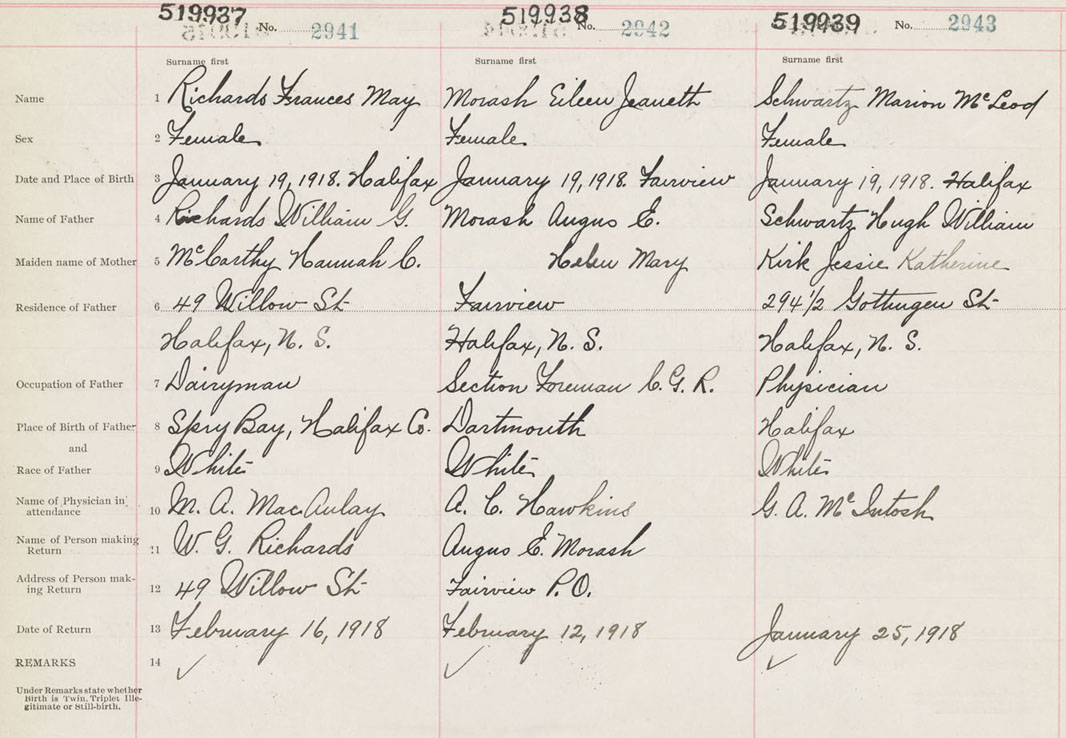 519937 No. 2941 519938 No. 2942 519939 No. 2943
Surname first Surname first Surname first
Name 1 Richards Frances May Morash Eileen Jeaneth Schwartz Marion McLeod
Sex 2 Female Female Female
Date and Place of Birth 3 January 19, 1918. Halifax January 19, 1918. Fairview January 19, 1918. Halifax
Name of Father 4 Richards William G. Morash Angus E. Schwartz Hugh William
Maiden name of Mother 5 McCarthy Hannah C. Helen Mary Kirk Jessie Katherine
Residence of Father 6 49 Willow St. Fairview 294 1/2 Gottingen St.
Halifax, N. S. Halifax, N. S. Halifax, N. S.
Occupation of Father 7 Dairyman Section Foreman C. G. R. Physician
Place of Birth of Father 8 Spry Bay, Halifax Co. Dartmouth Halifax
and
Race of Father 9 White White White
Name of Physician in
attendance 10 M. A. MacAulay A. C. Hawkins G. A. McIntosh
Name of Person making
Return 11 W. G. Richards Angus E. Morash
Address of Person mak-
ing Return 12 49 Willow St. Fairview P. O.
Date of Return 13 February 16, 1918 February 12, 1918 January 25, 1918
REMARKS 14 ✓ ✓ ✓
Under Remarks state whether
Birth is Twin, Triplet Ille-
gitimate or Still-birth.